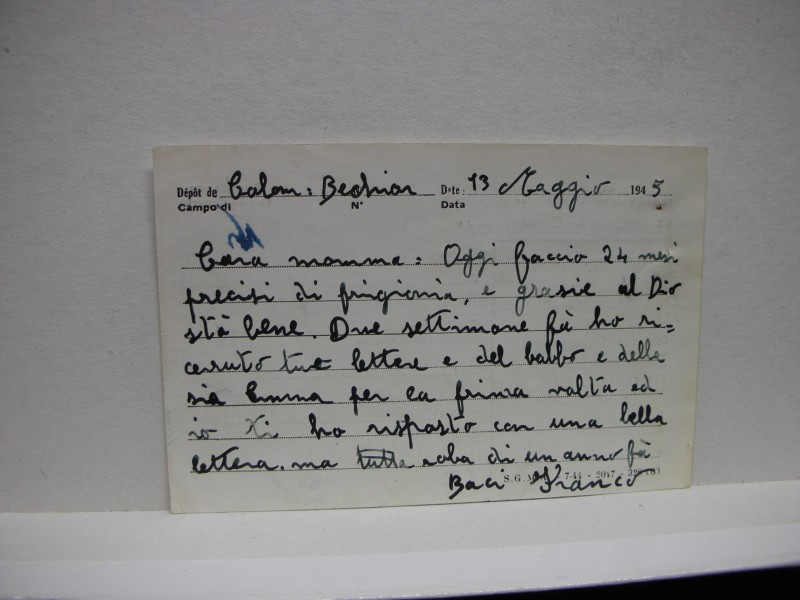 Dépôt de Colom: Bechar Date: 13 Maggio 1945
Campo di N° Data
Cara mamma: Oggi faccio 24 mesi
precisi di prigionia, e grasie al Dio
stà bene. Due settimane fà ho ri=
cevuto tue lettere e del babbo e della
sia Emma per la prima volta ed
io ti ho risposto con una bella
lettera. ma tutta roba di un anno fà
Baci Franco
S.G.